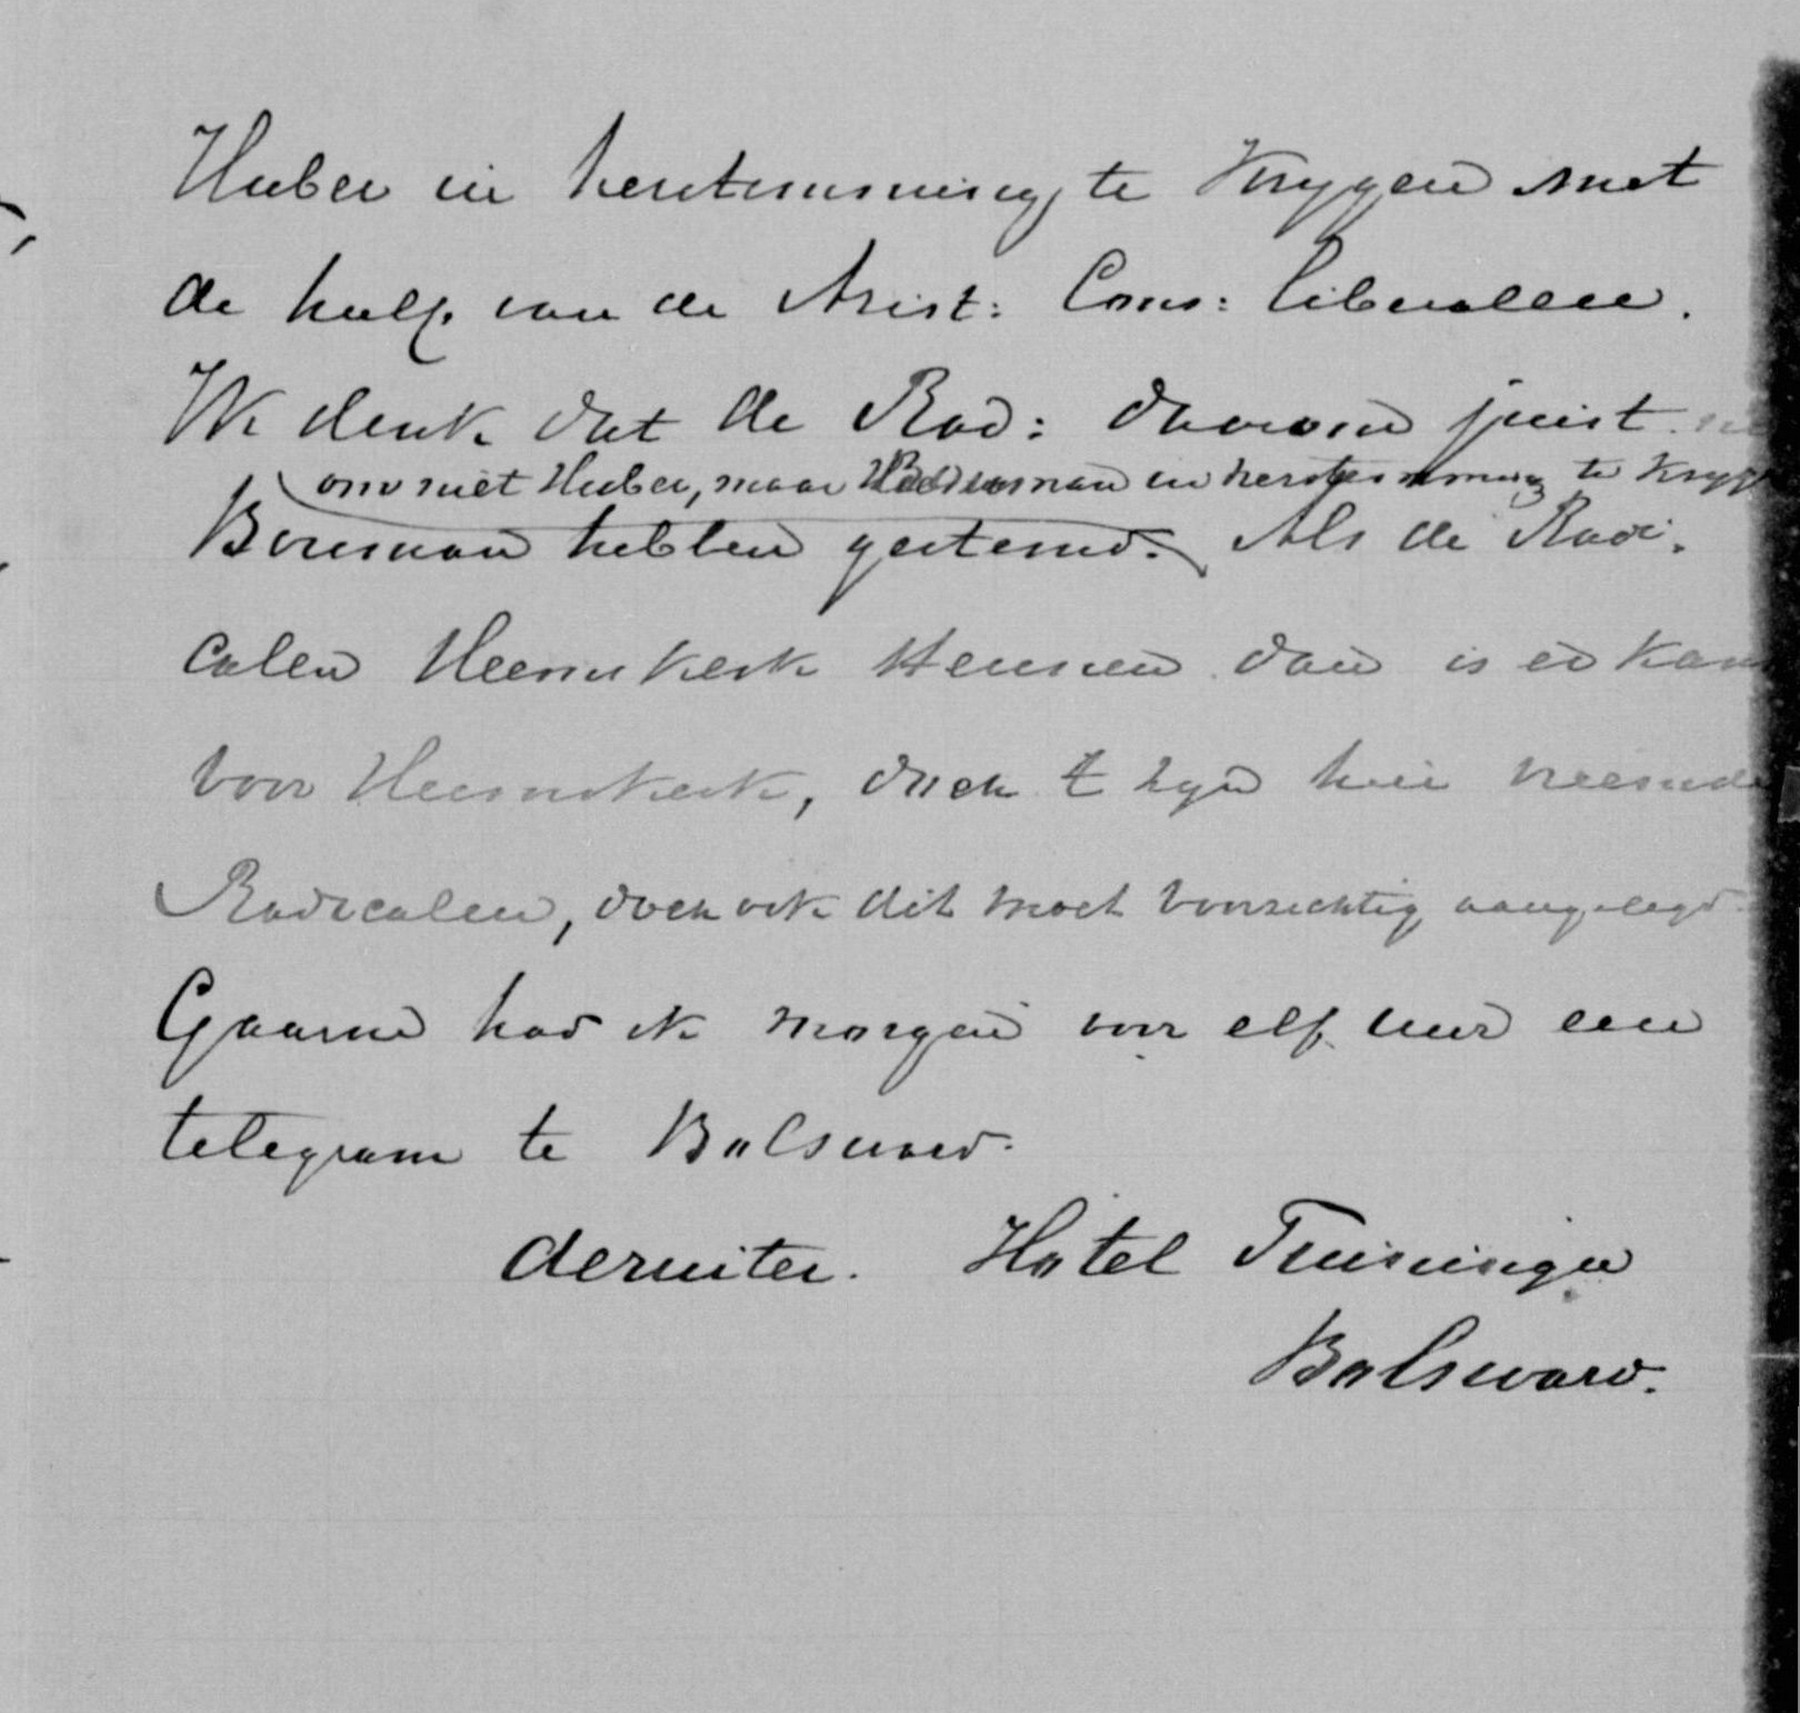 Huber in herstemming te krygen met
de hulp van de Arist: Cons: liberalen.
Ik denk dat de Rad: daarom juist
om niet Huber, maar Bouman in herstemming te kryg
Bouman hebben gestemd. Als de Radi-
calen Heemskerk steunen dan is er kans
voor Heemskerk, doch 't zyn hier vreemde
Radicalen, doch ook dit moet voorzichtig aangelegd
Gaarne had ik morgen voor elf uur een
telegram te Bolsward.
deruiter. Hotel
Bolsward.